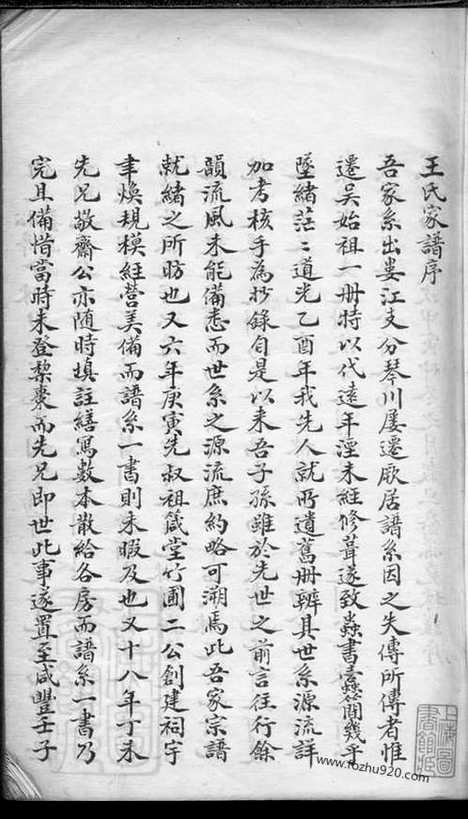 王氏家譜序
吾家系出婁江支分琴川屢遷厥居譜系因之失傳所傳者惟
遷吳始祖一冊特以代遠年淫未經修葺遂致蟲書蠹簡幾乎
墜緒茫〻道光乙酉年我先人就所遺舊冊辨其世系源流詳
加考核手為抄錄自是以來吾子孫雖於先世之前言往行餘
韻流風未能備悉而世系之源流庶約略可溯焉此吾家宗譜
就緒之所昉也又六年庚寅先叔祖箴堂竹圃二公創建祠宇
聿煥規模経營美備而譜系一書則未暇及也又十八年丁未
先兄敬齋公亦随時填註繕寫數本散給各房而譜系一書乃
完且備惜當時未登棃棗而先兄即世此事遂置至咸豐壬子
上海圖書館藏
www.fozhu920.com